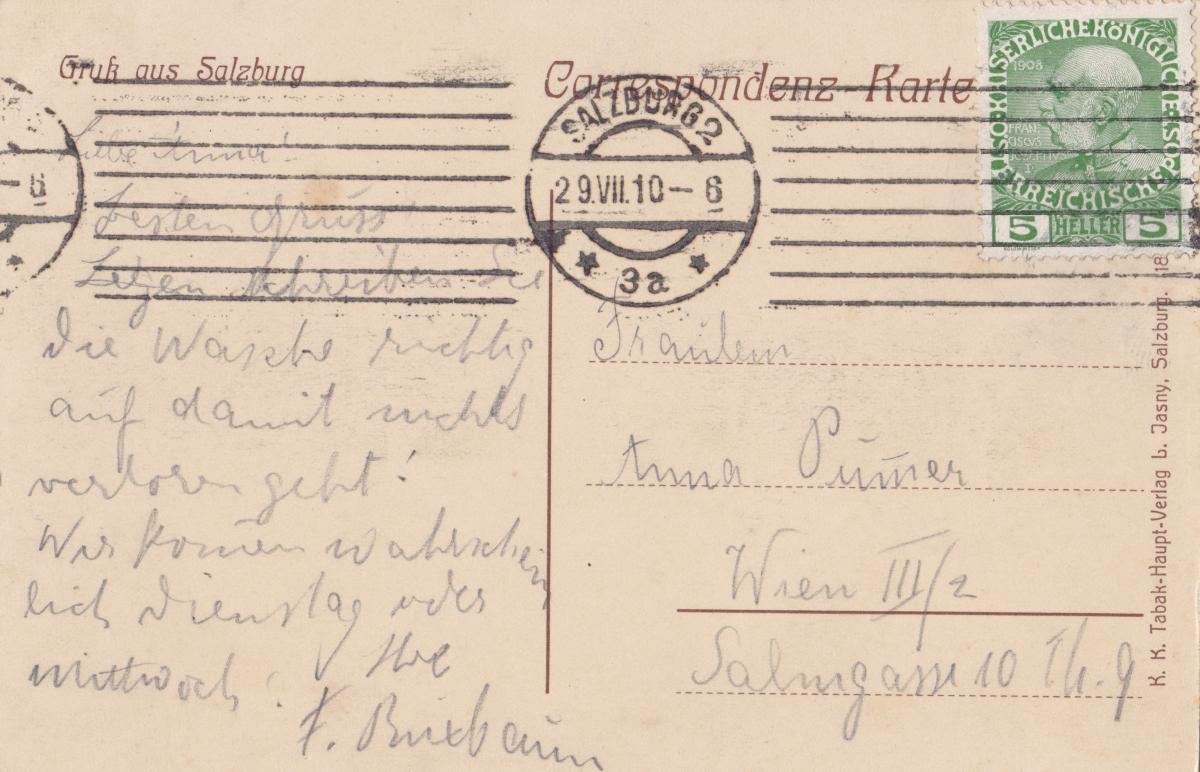 Gruß aus Salzburg
Correspondenz-Karte
SALZBURG 2
29.VII.10-6
3a
6
KAISERLICHE KÖNIGLICHE ÖSTERREICHISCHE POST
1908
FRANCISCVS JOSEPHVS I
5 HELLER 5
Liebe Anna!
Besten Gruss!
Legen schreiben Sie
die Wäsche richtig
auf damit nichts
verloren geht!
Wir komen wahrschein
lich Dienstag oder
Mittwoch!
Ihre
F. Buxbaum
Fräulein
Anna
Wien III/2
Salmgasse 10 Th. 9
K. K. Tabak-Haupt-Verlag L. Jasny, Salzburg. 18